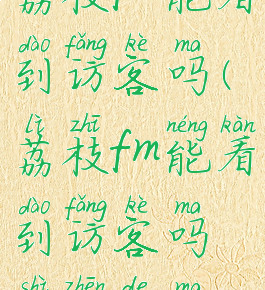 荔枝fm能看
dào fǎng kè ma
到访客吗(
lì zhī néng kàn
荔枝fm能看
dào fǎng kè ma
到访客吗
shì zhēn de ma